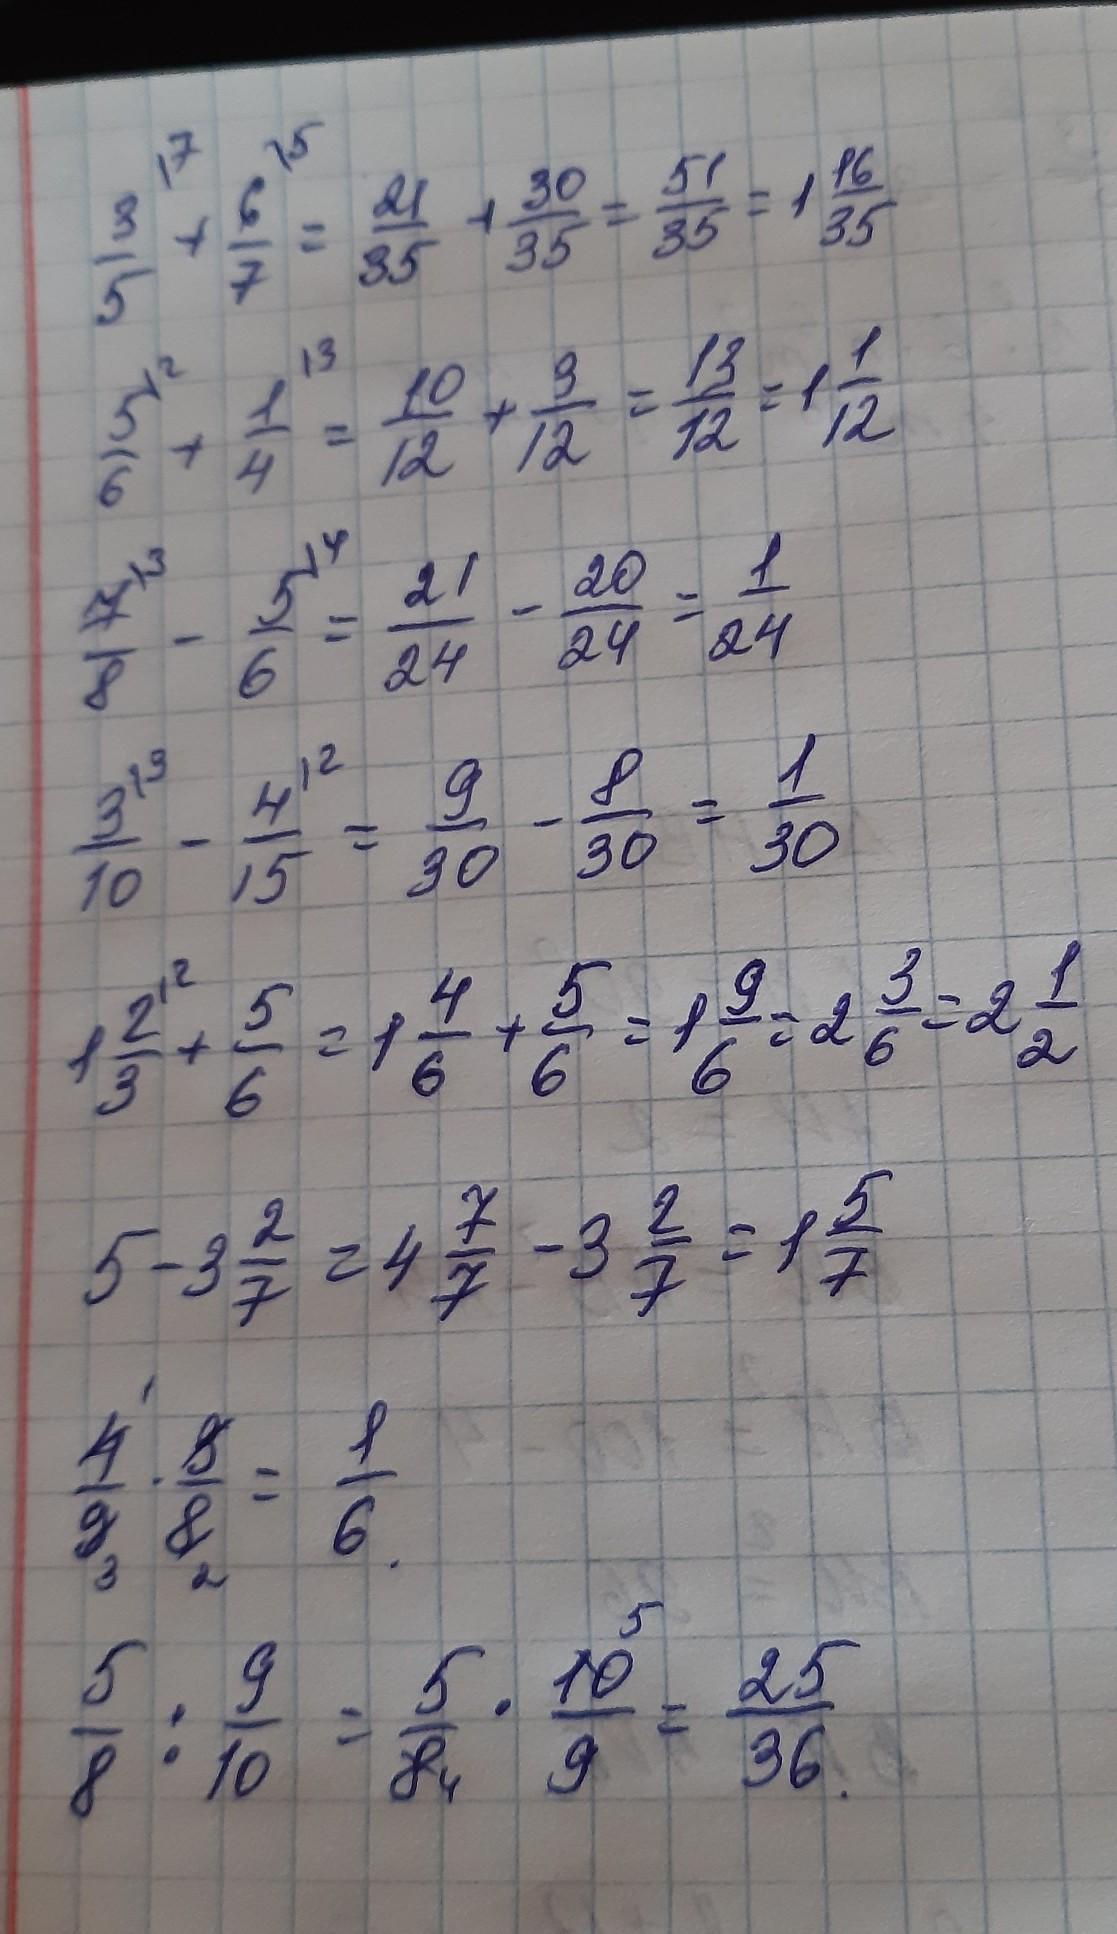 3/5 \7 + 6/7 \5 = 21/35 + 30/35 = 51/35 = 1 16/35
5/6 \2 + 1/4 \3 = 10/12 + 3/12 = 13/12 = 1 1/12
7/8 \3 - 5/6 \4 = 21/24 - 20/24 = 1/24
3/10 \3 - 4/15 \2 = 9/30 - 8/30 = 1/30
1 2/3 \2 + 5/6 = 1 4/6 + 5/6 = 1 9/6 = 2 3/6 = 2 1/2
5 - 3 2/7 = 4 7/7 - 3 2/7 = 1 5/7
4 1/9 3 · 3/8 2 = 1/6.
5/8 : 9/10 = 5/8 4 · 10 5/9 = 25/36.